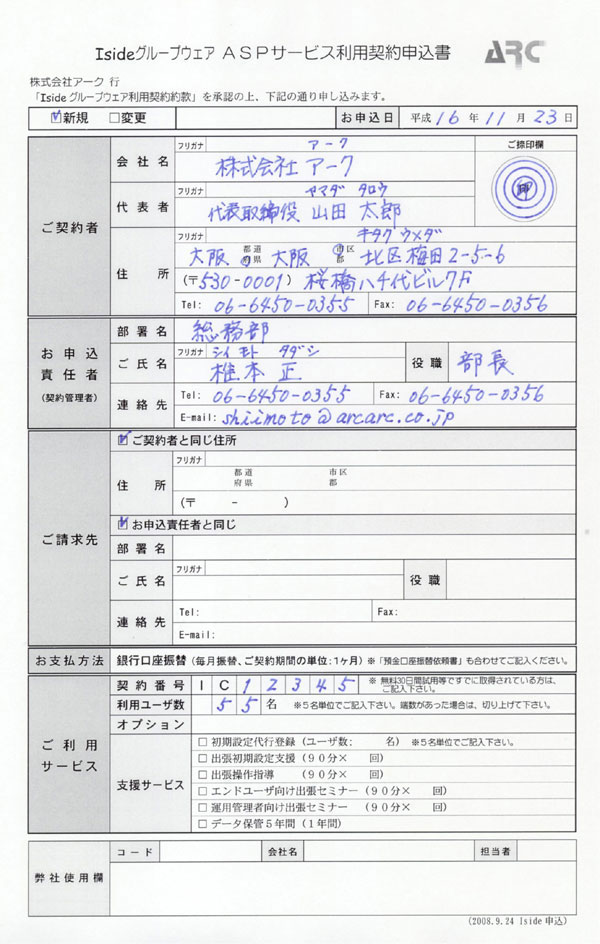 Isideグループウェア ASPサービス利用契約申込書 ARC
株式会社アーク 行
「Iside グループウェア利用契約約款」を承認の上、下記の通り申し込みます。
☑新規 □変更 お申込日 平成 16 年 11 月 23 日
ご契約者
フリガナ アーク ご捺印欄
会社名 株式会社 アーク
印
フリガナ ヤマダ タロウ
代表者 代表取締役 山田 太郎
フリガナ キタク ウメダ
住所 大阪 都道府県 大阪 市区郡 北区梅田2-5-6
(〒530-0001) 桜橋八千代ビル7F
Tel: 06-6450-0355 Fax: 06-6450-0356
お申込責任者
(契約管理者)
部署名 総務部
フリガナ シイモト タダシ
ご氏名 椎本 正 役職 部長
連絡先 Tel: 06-6450-0355 Fax: 06-6450-0356
E-mail: shiimoto@arcarc.co.jp
ご請求先
☑ご契約者と同じ住所
フリガナ
住所 都道府県 市区郡
(〒 - )
☑お申込責任者と同じ
部署名
フリガナ
ご氏名 役職
連絡先 Tel: Fax:
E-mail:
お支払方法 銀行口座振替(毎月振替、ご契約期間の単位:1ヶ月) ※「預金口座振替依頼書」も合わせてご記入ください。
ご利用サービス
契約番号 I C 1 2 3 4 5 ※ 無料30日間試用等ですでに取得されている方は、ご記入下さい。
利用ユーザ数 5 5 名 ※5名単位でご記入下さい。端数があった場合は、切り上げて下さい。
オプション
支援サービス
□ 初期設定代行登録(ユーザ数: 名)※5名単位でご記入下さい。
□ 出張初期設定支援(90分× 回)
□ 出張操作指導 (90分× 回)
□ エンドユーザ向け出張セミナー(90分× 回)
□ 運用管理者向け出張セミナー (90分× 回)
□ データ保管5年間(1年間)
弊社使用欄
コード 会社名 担当者
(2008.9.24 Iside 申込)